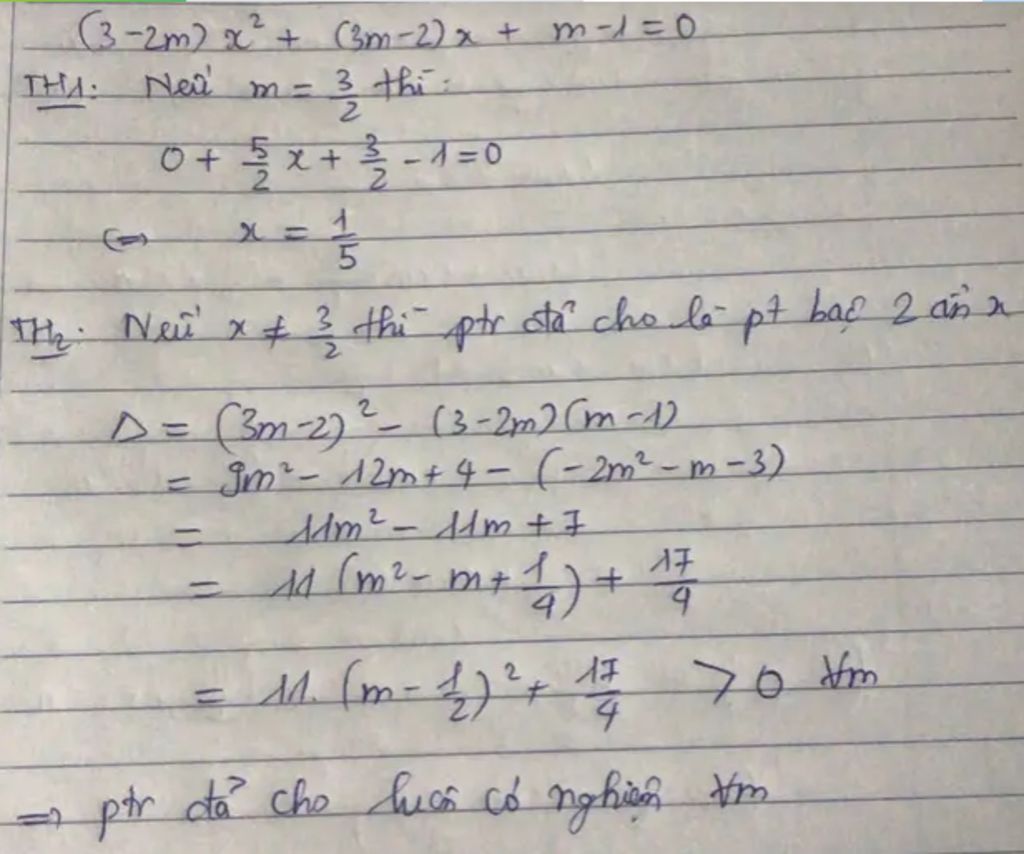 (3-2m) x² + (3m-2)x + m-1 = 0
TH1: Nếu m = 3/2 thì:
0 + 5/2 x + 3/2 - 1 = 0
⇔ x = 1/5
TH2: Nếu x ≠ 3/2 thì ptr đã cho là pt bậc 2 ẩn x
Δ = (3m-2)² - (3-2m)(m-1)
= 9m² - 12m + 4 - (-2m² - m - 3)
= 11m² - 11m + 7
= 11 (m² - m + 1/4) + 17/4
= 11. (m - 1/2)² + 17/4 > 0 ∀m
⇒ ptr đã cho luôn có nghiệm ∀m